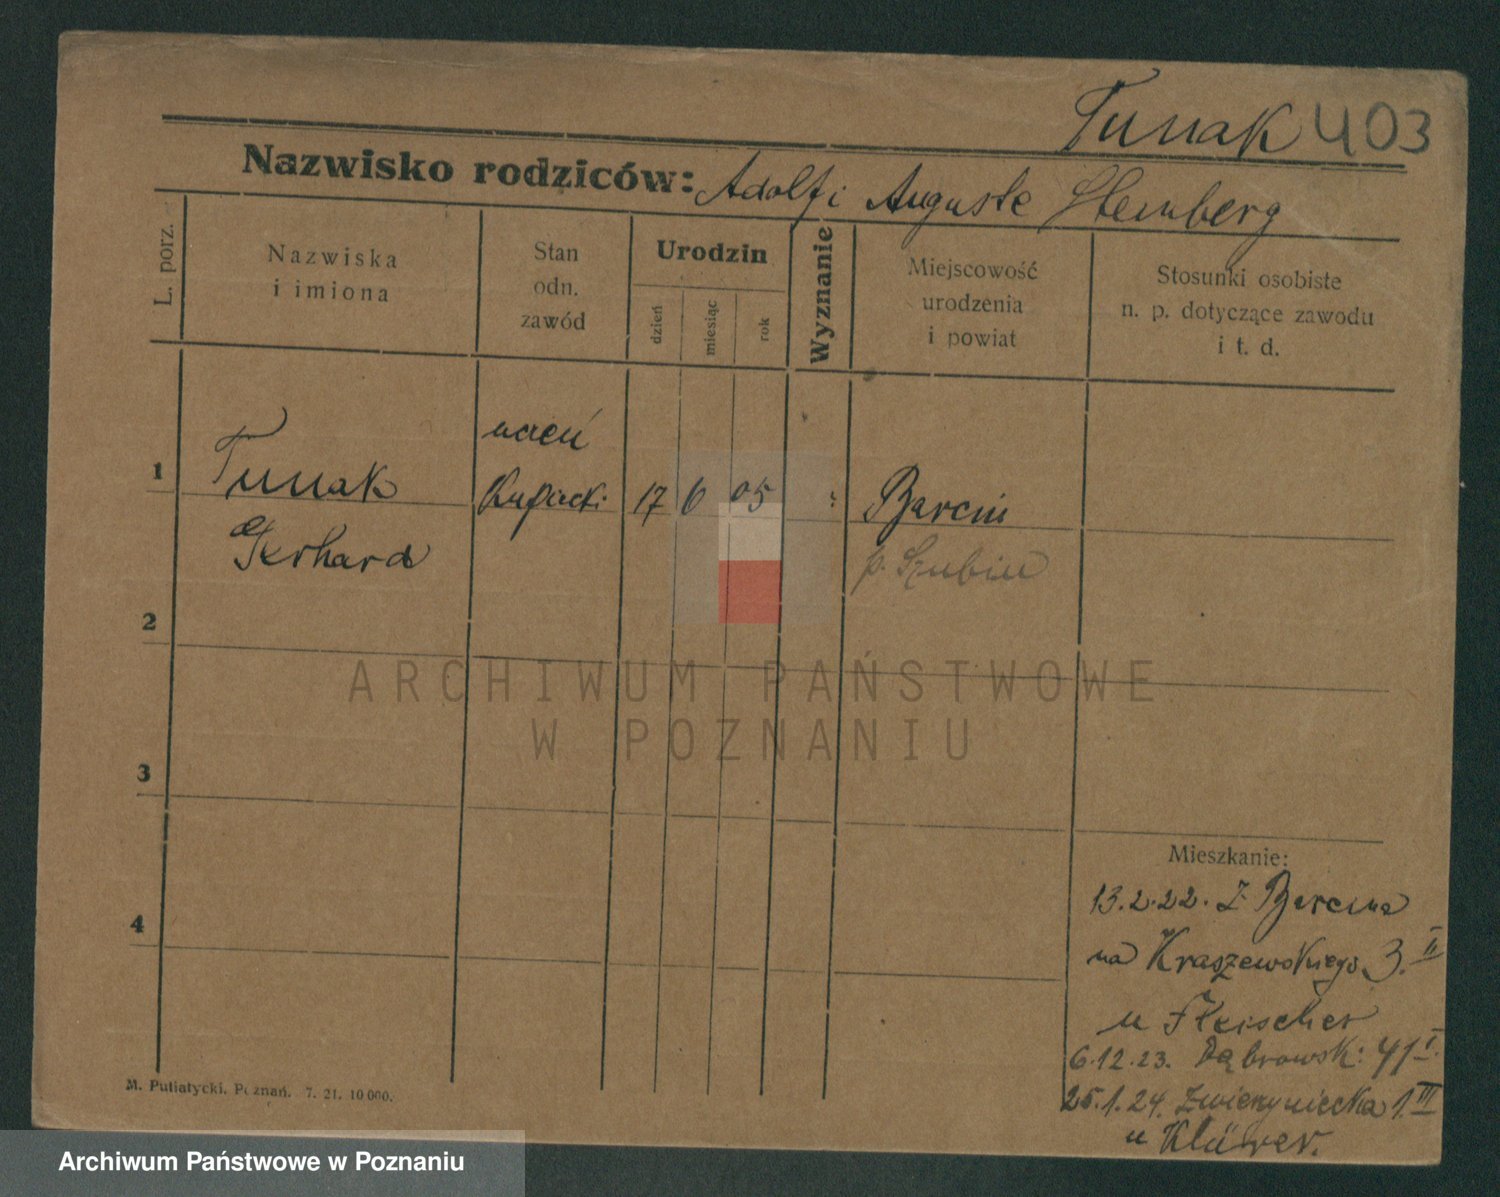 Tunak 403
Nazwisko rodziców: Adolf i Auguste Sternberg
L. porz.
Nazwiska
i imiona
Stan
odn.
zawód
Urodzin
dzień
miesiąc
rok
Wyznanie
Miejscowość
urodzenia
i powiat
Stosunki osobiste
n. p. dotyczące zawodu
i t. d.
1
Tunak
Gerhard
uczeń
kupiecki
17 6 05
Barcin
p. Szubin
2
3
4
Mieszkanie:
13.2.22. z Barcina
na Kraszewskiego 3. II
u Fleischer
6.12.23. Dąbrowsk: 41 I.
25.1.24. Zwierzyniecka 1. III
u Klüver.
M. Putiatycki, Poznań. 7. 21. 10 000.
ARCHIWUM PAŃSTWOWE
W POZNANIU
Archiwum Państwowe w Poznaniu